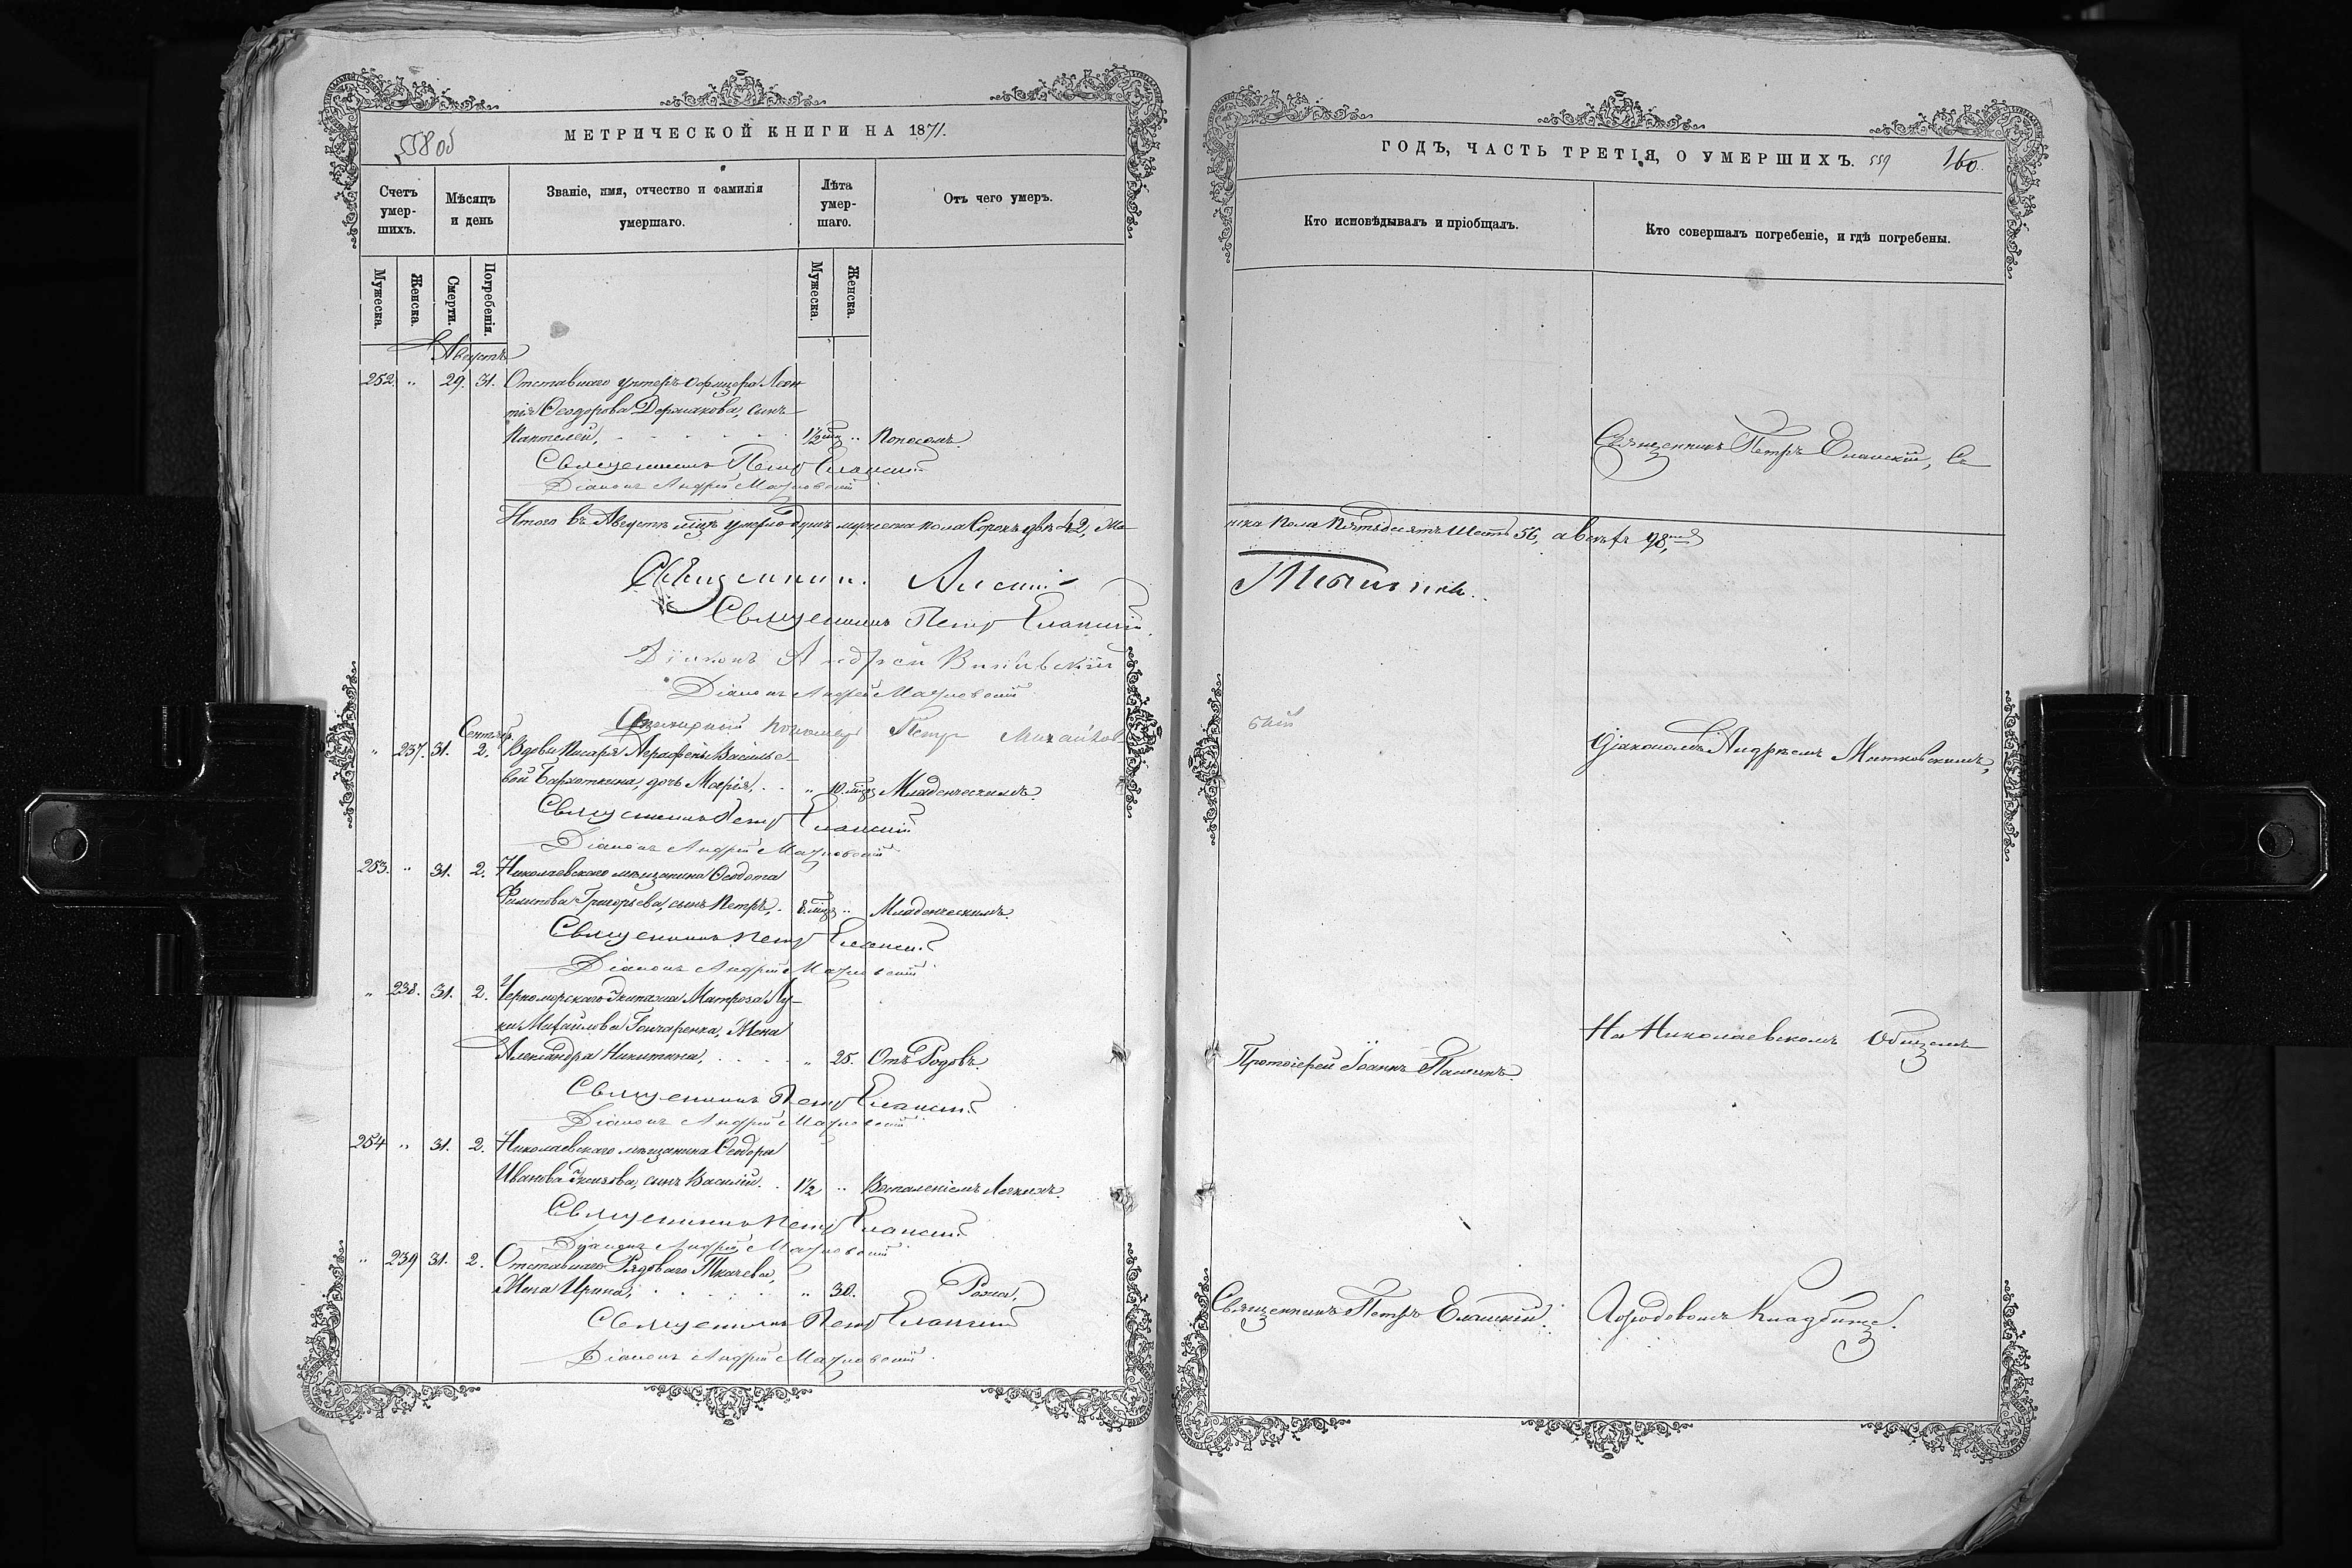 МЕТРИЧЕСКОЙ КНИГИ НА 1871.
558 об
Счетъ умер-шихъ.
Мѣсяцъ и день
Званіе, имя, отчество и фамилія умершаго.
Лѣта умер-шаго.
Отъ чего умеръ.
Мужеска.
Женска.
Смерти.
Погребенія.
Мужеска.
Женска.
Августъ
252. " 29. 31. Отставнаго унтеръ-офицера Леон-
тія Ѳеодорова Держакова, сынъ
Пантелей, 1½ мѣц " Поносомъ.
Священникъ Петръ Еланскій
Діаконъ Андрей Матковскій
Итого въ Августѣ мцѣ умерло душъ мужеска пола Сорокъ два 42, Же-
Священникъ Алексій
Священникъ Петръ Еланскій
Діаконъ Андрей
Діаконъ Андрей Матковскій
Петръ Михайлов
Сентябр.
" 237. 31. 2. Вдовы Писаря Аграфены Василье-
вой дочь Марія, " 10. мцѣ Младенческимъ.
Священникъ Петръ Еланскій
Діаконъ Андрей Матковскій
253. " 31. 2. Николаевскаго мѣщанина Ѳеодота
Филипова Григорьева, сынъ Петръ, 8. мцѣ " Младенческимъ.
Священникъ Петръ Еланскій
Діаконъ Андрей Матковскій
" 238. 31. 2. Черноморскаго Экипажа Матроза Лу-
ки Михайлова Гончаренка, Жена
Александра Никитина, " 25. Отъ Родовъ.
Священникъ Петръ Еланскій
Діаконъ Андрей Матковскій
254 " 31. 2. Николаевскаго мѣщанина Ѳеодора
Иванова сынъ Василій. 1½ " Воспаленіемъ Легкихъ.
Священникъ Петръ Еланскій
Діаконъ Андрей Матковскій
" 239 31. 2. Отставнаго Рядоваго Ткачева,
Жена Ирина, " 30. Рожа.
Священникъ Петръ Еланскій
Діаконъ Андрей Матковскій
ГОДЪ, ЧАСТЬ ТРЕТІЯ, О УМЕРШИХЪ. 559 160
Кто исповѣдывалъ и пріобщалъ.
Кто совершалъ погребеніе, и гдѣ погребены.
Священникъ Петръ Еланскій, Съ
нска пола Пятьдесятъ Шесть 56, а всего 98,
Діакономъ Андреемъ Матковскимъ,
На Николаевскомъ Общемъ
Протоіерей Іоаннъ
Священникъ Петръ Еланскій.
Городовомъ Кладбище.